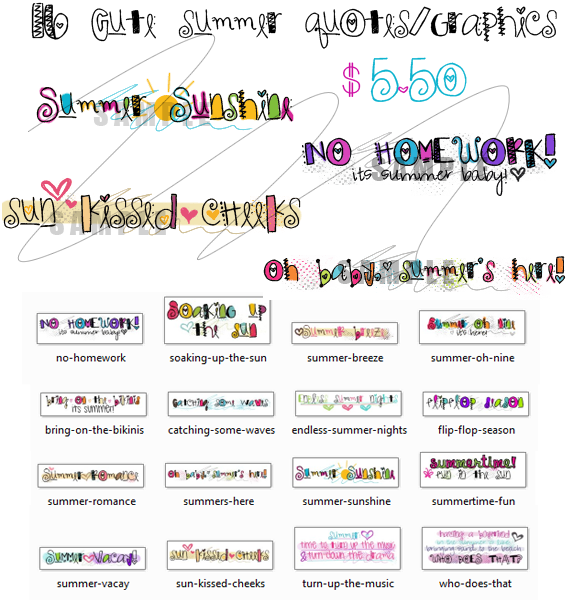 16 cute summer quotes/graphics
$5.50
Summer Sunshine
SAMPLE
NO HOMEWORK!
SAMPLE
its summer baby!
sun-kissed-cheeks
SAMPLE
oh baby, summer's here!
SAMPLE
NO HOMEWORK!
its summer baby!
Soaking up
the sun
summer breeze
Summer oh nine
it's here!
no-homework
soaking-up-the-sun
summer-breeze
summer-oh-nine
bring-on-the-bikinis
it's summer!
catching some waves
endless summer nights
flipflop season
bring-on-the-bikinis
catching-some-waves
endless-summer-nights
flip-flop-season
Summer Romance
oh baby, summer's here!
Summer Sunshine
summertime!
fun in the sun
summer-romance
summers-here
summer-sunshine
summertime-fun
Summer Vacay!
sun-kissed-cheeks
summer
time to turn up the music
& turn down the drama
WHO DOES THAT?
summer-vacay
sun-kissed-cheeks
turn-up-the-music
who-does-that